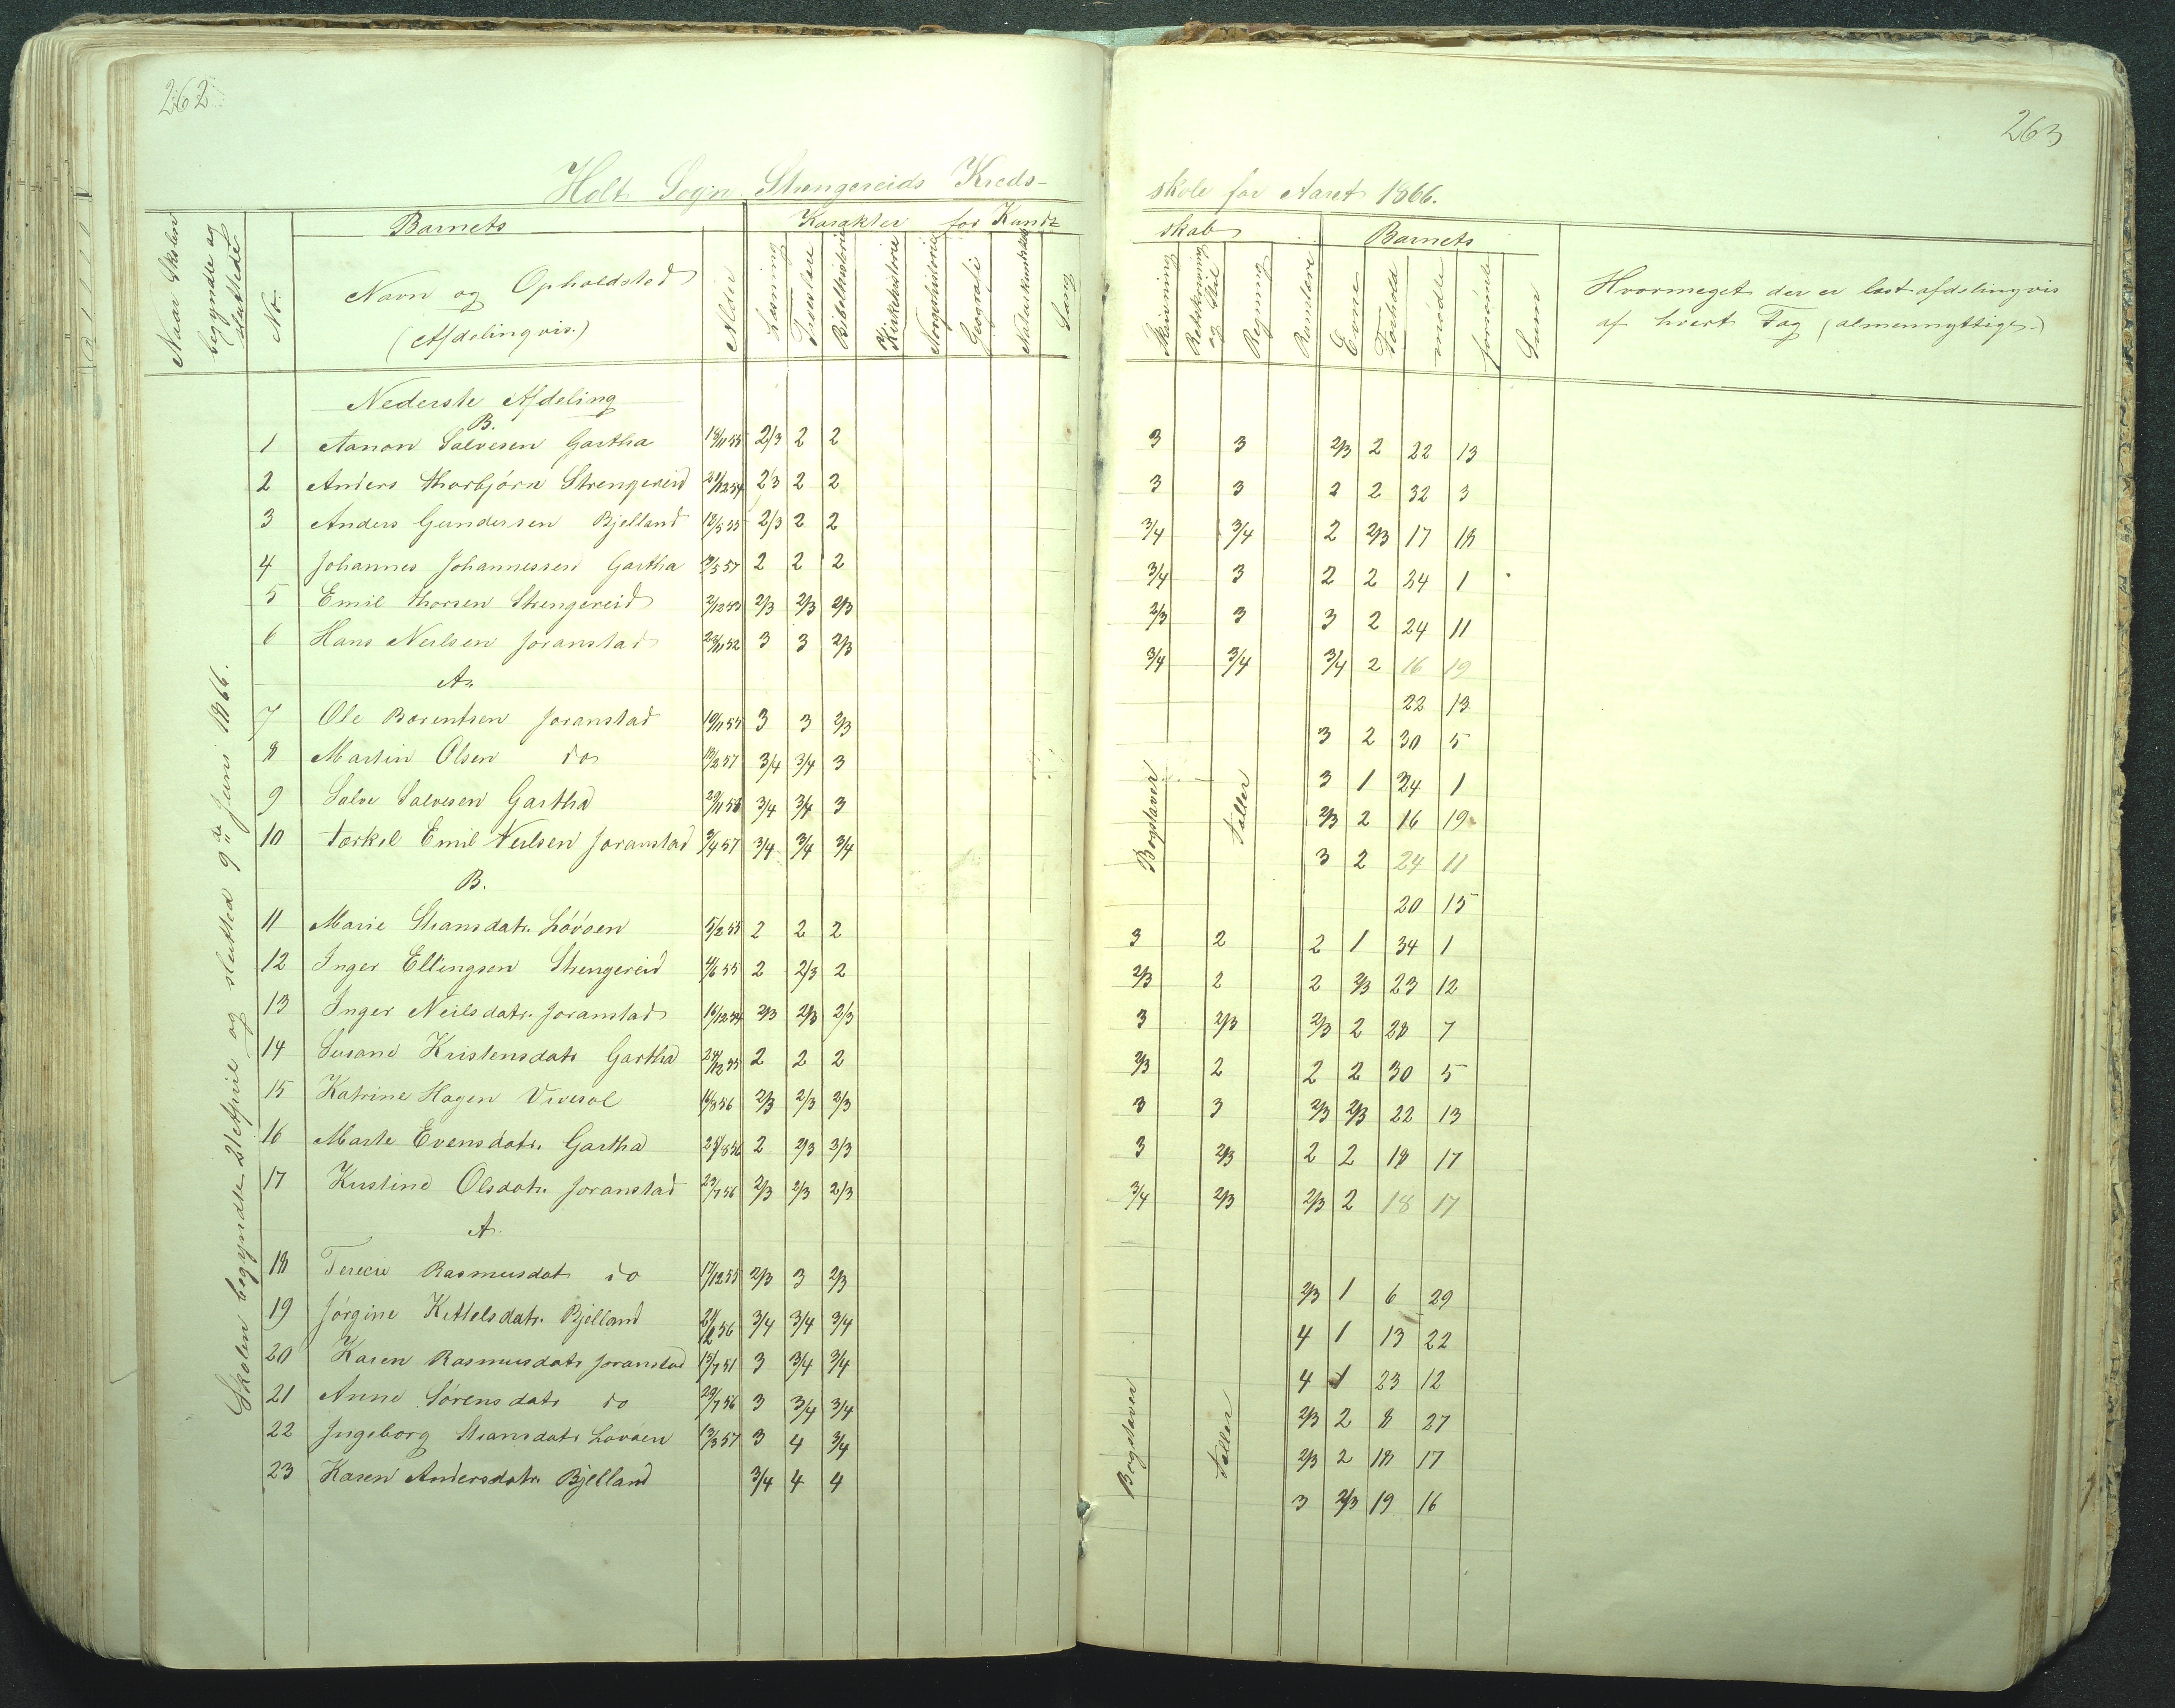 262
263
Holt Sogn Strengereids Kreds-
skole for Aaret 1866.
Naar Skolen begyndte og sluttede
No.
Barnets
Navn og Opholdsted
(Afdelingvis.)
Alder
Karakter for Kund-
skab
Læsning
Troeslære
Bibelhistorie
Kirkehistorie
Norgeshistorie
Geografi
Naturkundskab
Sang
Skrivning
Retskrivning og Stil
Regning
Barnets
Evne
Forhold
mødte
forsømte
Sum
Hvormeget der er læst afdelingvis
af hvert Fag (almennyttige.)
Skolen begyndte 21 April og sluttede 9de Juni 1866.
Nederste Afdeling
B.
1 Aanon Salvesen Gartha 2/3 2 2 3 3 2/3 2 22 13
2 Anders Thorbjörn Strengereid 2/3 2 2 3 3 2 2 32 3
3 Anders Gundersen Bjelland 2/3 2 2 3/4 3/4 2 2/3 17 18
4 Johannes Johannessen Gartha 2 2 2 3/4 3 2 2 34 1
5 Emil Thorsen Strengereid 2/3 2/3 2/3 2/3 3 3 2 24 11
6 Hans Neilsen Joranstad 3 3 2/3 3/4 3/4 3/4 2 16 19
A.
22 13
7 Ole Borentsen Joranstad 3 3 2/3 3 2 30 5
8 Martin Olsen do 3/4 3/4 3 3 1 34 1
9 Salve Salvesen Gartha 3/4 3/4 3 2/3 2 16 19
10 Torkel Emil Neilsen Joranstad 3/4 57 3/4 3/4 3/4 3 2 24 11
Bogstaver
Taller
B.
20 15
11 Marie Stiansdatr. Lövöen 5/2 55 2 2 2 3 2 2 1 34 1
12 Inger Ellingsen Strengereid 4/6 55 2 2/3 2 2/3 2 2 2/3 23 12
13 Inger Neilsdatr. Joranstad 2/3 2/3 2/3 3 2/3 2/3 2 28 7
14 Susane Kristensdatr Gartha 2 2 2 2/3 2 2 2 30 5
15 Katrine Hagen 2/3 2/3 2/3 3 3 2/3 2/3 22 13
16 Marte Evensdatr. Gartha 2 2/3 2/3 3 2/3 2 2 18 17
17 Kristine Olsdatr. Joranstad 2/3 2/3 2/3 3/4 2/3 2/3 2 18 17
A.
18 Rasmusdat do 17/12 55 2/3 3 2/3 2/3 1 6 29
19 Jörgine Kittelsdatr. Bjelland 3/4 3/4 3/4 4 1 13 22
20 Karen Rasmusdatr Joranstad 15/7 51 3 3/4 3/4 4 1 23 12
21 Anne Sörensdatr do 29/7 56 3 3/4 3/4 2/3 2 8 27
22 Ingeborg Stiansdatr Lovöen 13/3 57 3 4 3/4 2/3 2 18 17
23 Karen Andersdatr. Bjelland 3/4 4 4 3 2/3 19 16
Bogstaver
Taller